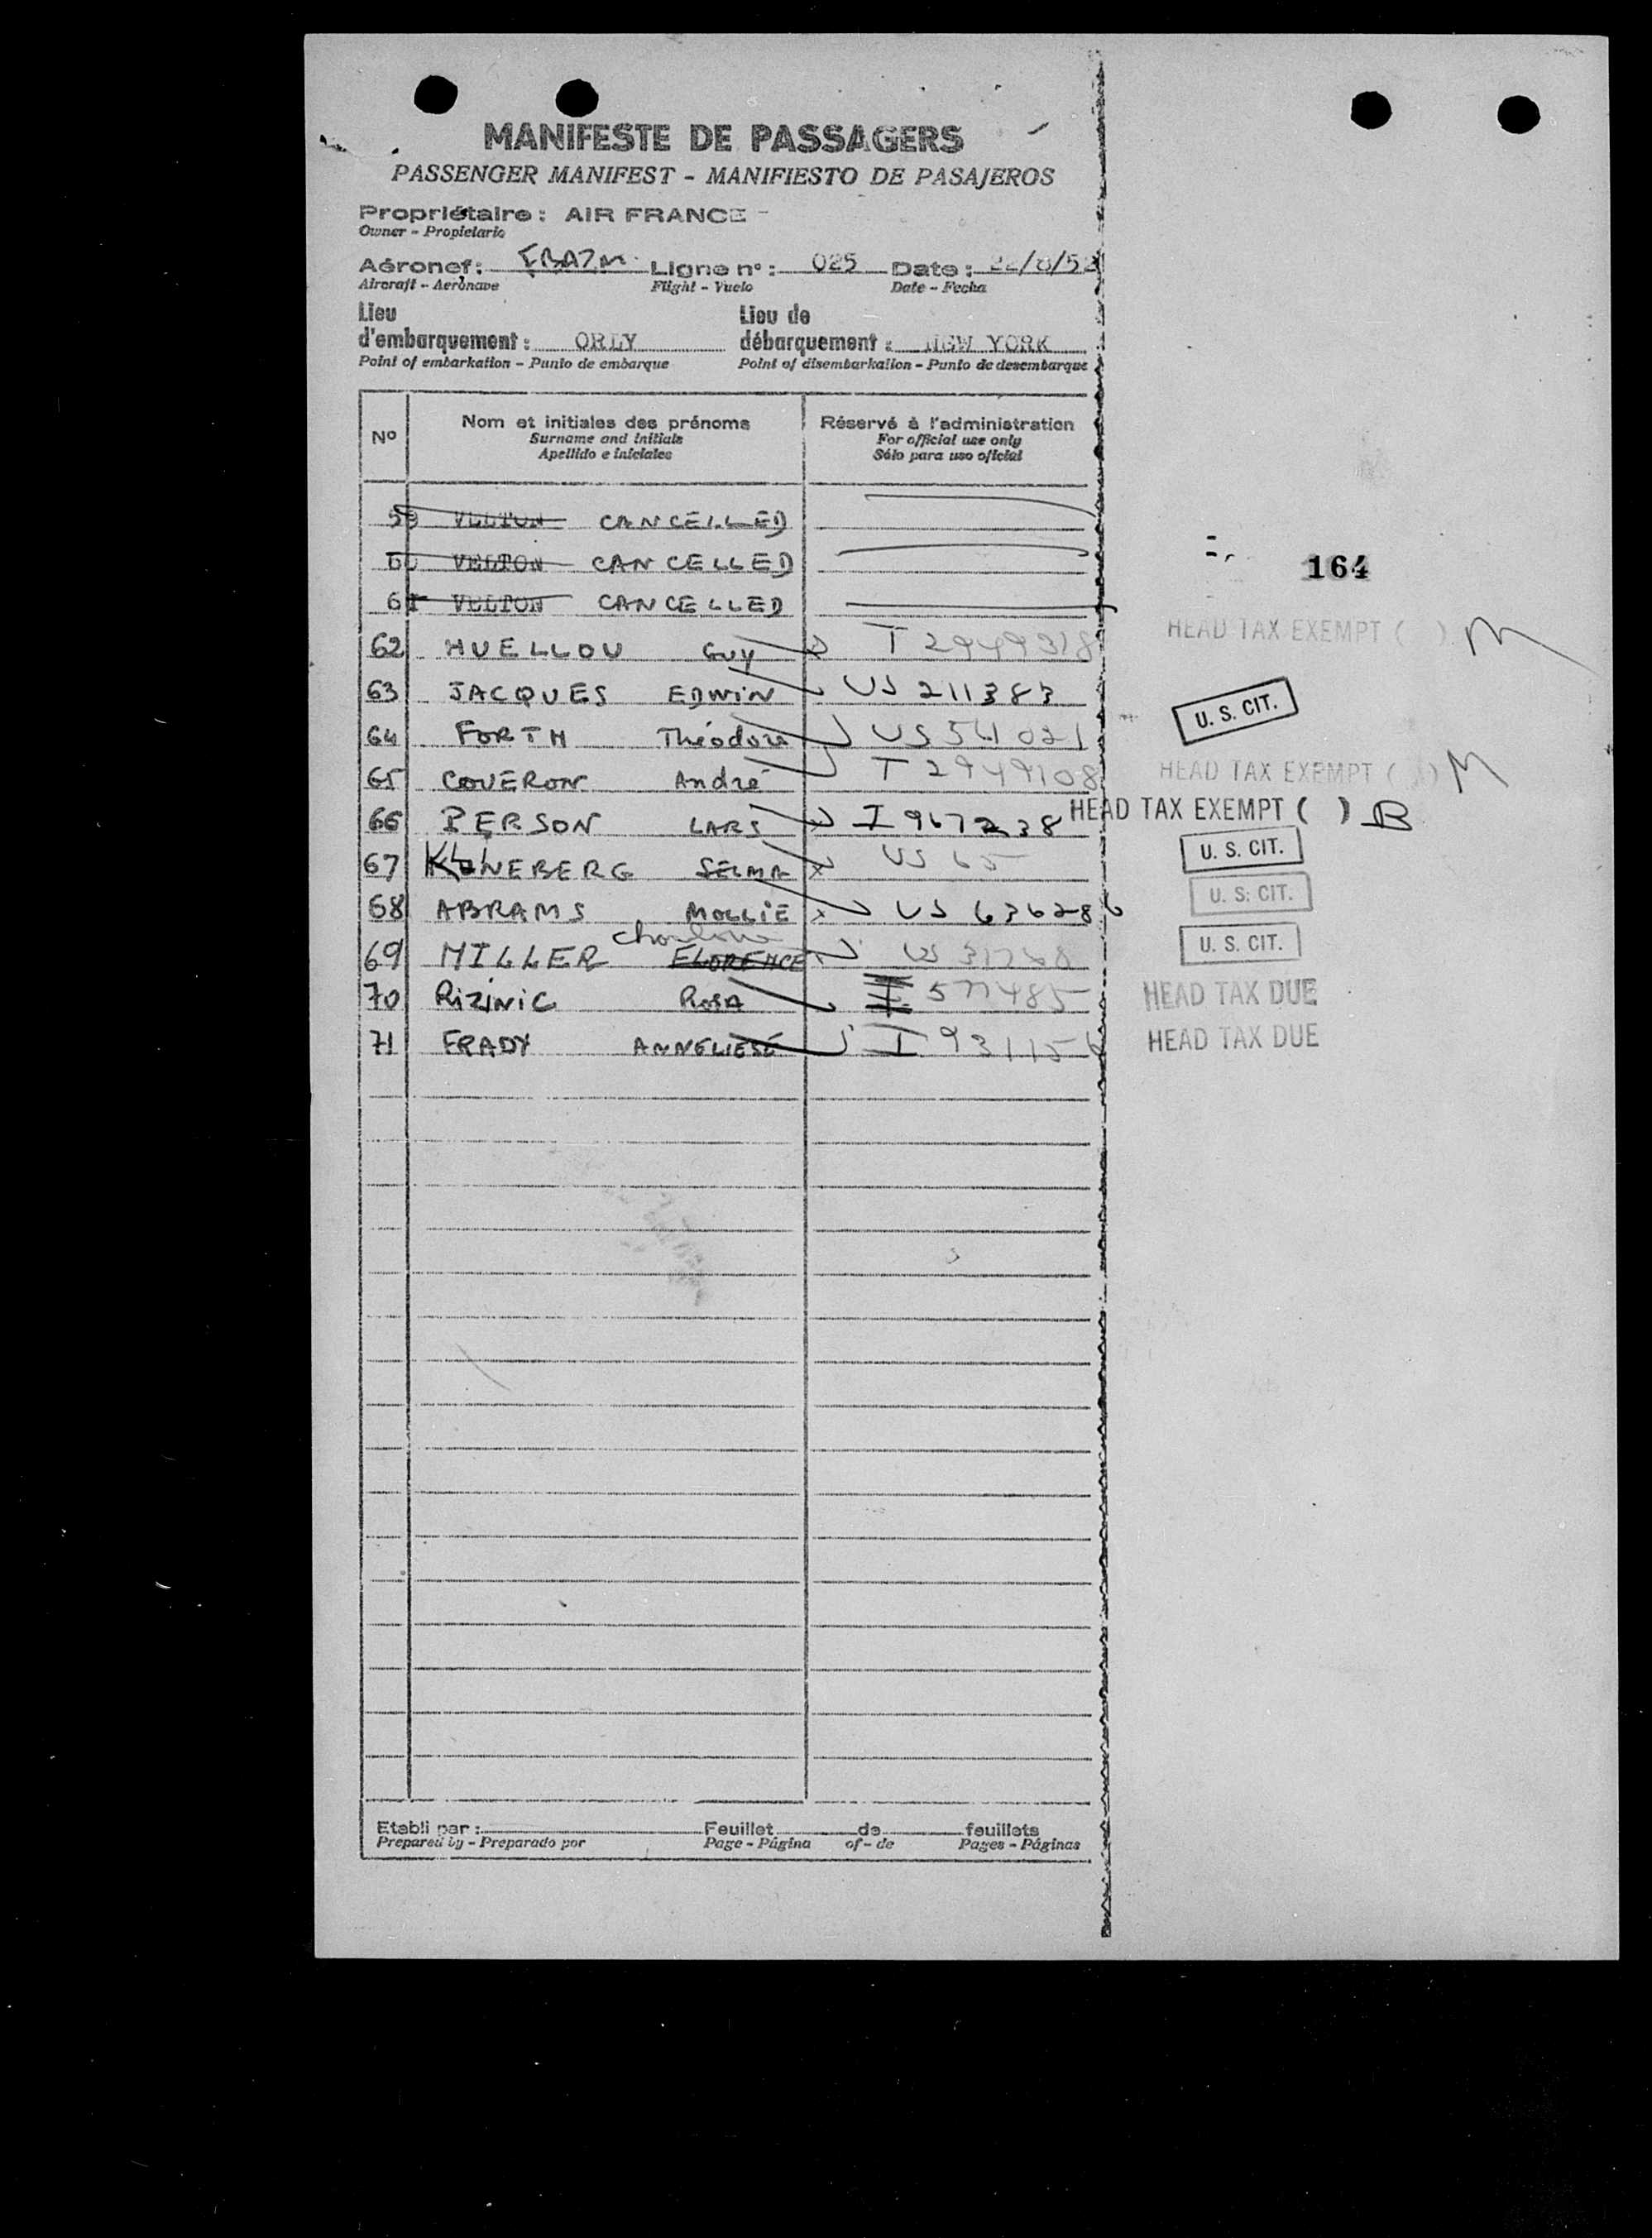 MANIFESTE DE PASSAGERS
PASSENGER MANIFEST - MANIFIESTO DE PASAJEROS
Propriétaire : AIR FRANCE -
Owner - Propietario
Aéronef : FBAZM Ligne n° : 025 Date : 22/8/52
Aircraft - Aerònave Flight - Vuelo Date - Fecha
Lieu d'embarquement : ORLY Lieu de débarquement : NEW YORK
Point of embarkation - Punto de embarque Point of disembarkation - Punto de desembarque
N° Nom et initiales des prénoms Réservé à l'administration
Surname and initials For official use only
Apellido e iniciales Sólo para uso oficial
59 VELTON CANCELLED
60 VELTON CANCELLED 164
61 VELTON CANCELLED
62 HUELLOU GUY T 2949318 HEAD TAX EXEMPT ( ) M
63 JACQUES EDWIN US 211383 U. S. CIT.
64 FORTH Théodore US 541021
65 COUERON André T 2949108 HEAD TAX EXEMPT ( ) M
66 PERSON LARS I 967238 HEAD TAX EXEMPT ( ) B
67 NEBERG SELMA US 65 U. S. CIT.
68 ABRAMS MOLLIE US 636286 U. S. CIT.
69 MILLER FLORENCE US 31768 U. S. CIT.
70 RIZINIC ROSA I 577485 HEAD TAX DUE
71 FRADY ANNELIESE I 931156 HEAD TAX DUE
Etabli par : Feuillet de feuillets
Prepared by - Preparado por Page - Página of - de Pages - Páginas